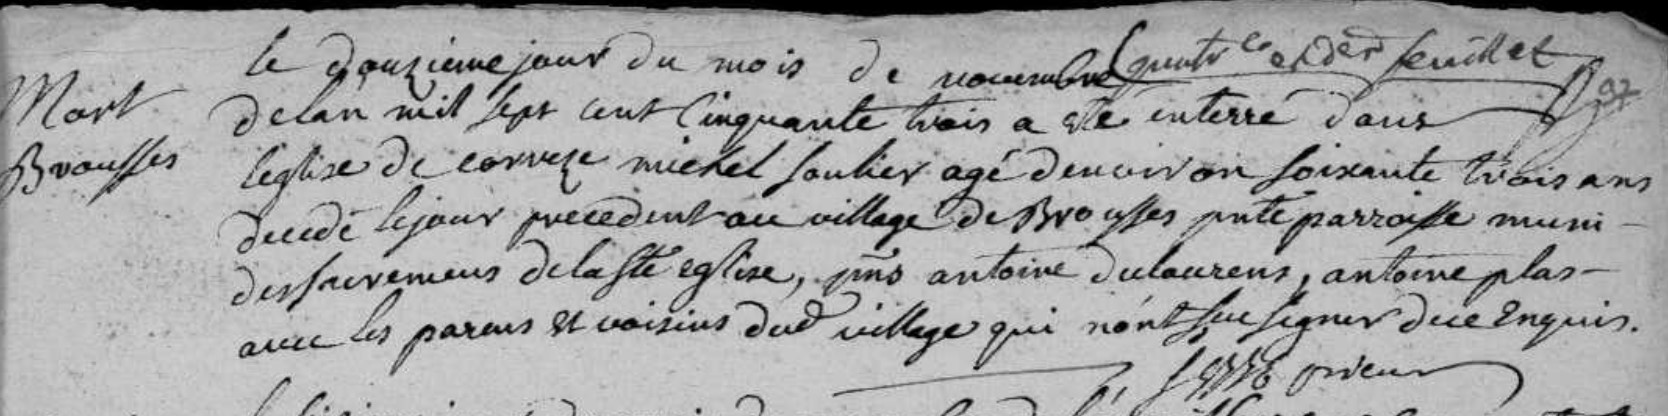 le douzieme jour du mois de novembre (quatr^e et der^r feuillet
Mort
de lan mil sept cent Cinquante trois a esté enterré dans
Brousses
leglise de correze michel soulier agé denviron soixante trois ans
decedé le jour precedent au village de Brousses pnte parroisse muni
des sacremens de la ste eglise, pns antoine dulaurens, antoine plas
avec les parens et voisins dud village qui n'ont sceu signer de ce Enquis.
prieur